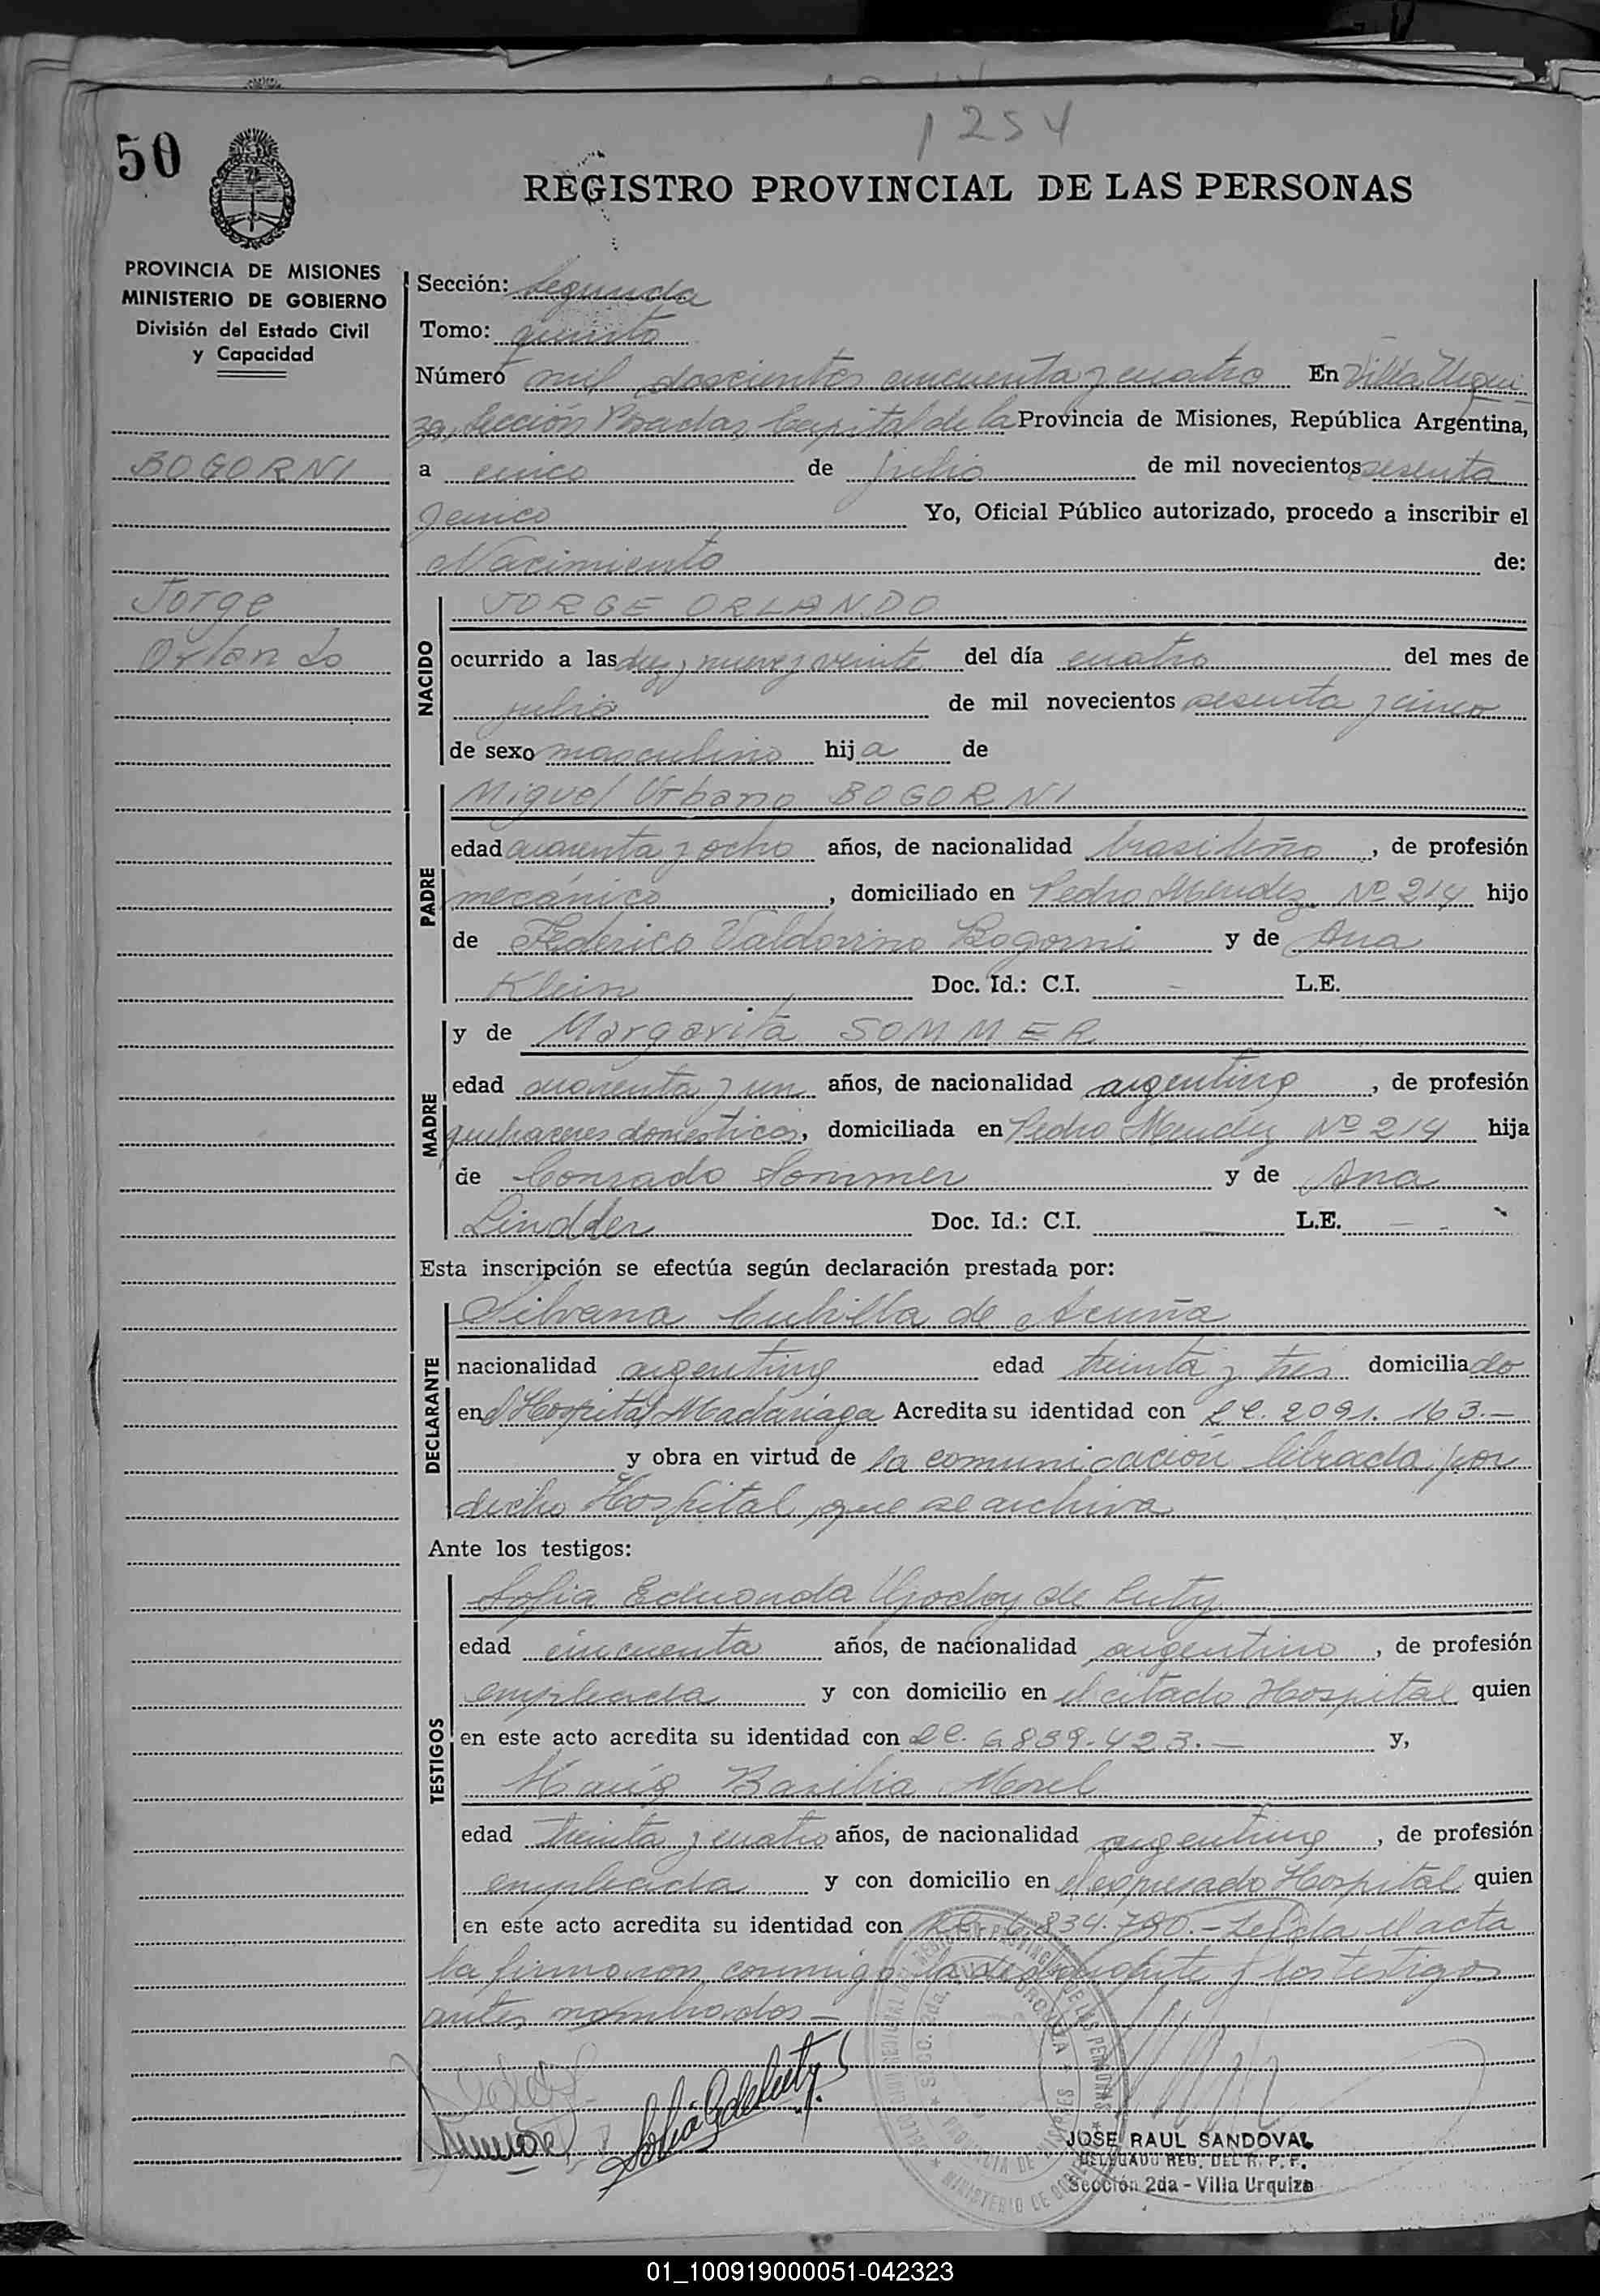 1254
50
REGISTRO PROVINCIAL DE LAS PERSONAS
PROVINCIA DE MISIONES
MINISTERIO DE GOBIERNO
División del Estado Civil
y Capacidad
BOGORNI
Jorge
Orlando
Sección: Segunda
Tomo: quinto
Número mil doscientos cincuenta y cuatro En Villa Urqui
za, Sección Posadas, Capital de la Provincia de Misiones, República Argentina,
a cinco de julio de mil novecientos sesenta
y cinco Yo, Oficial Público autorizado, procedo a inscribir el
Nacimiento de:
NACIDO
JORGE ORLANDO
ocurrido a las diez y nueve y veinte del día cuatro del mes de
julio de mil novecientos sesenta y cinco
de sexo masculino hija de
PADRE
Miguel Urbano BOGORNI
edad cuarenta y ocho años, de nacionalidad brasileño, de profesión
mecánico, domiciliado en Pedro Mendez Nº 214 hijo
de Federico Valdovino Bogorni y de Ana
Klein Doc. Id.: C.I. - L.E.
MADRE
y de Margarita SOMMER
edad cuarenta y un años, de nacionalidad argentina, de profesión
quehaceres domesticos, domiciliada en Pedro Mendez Nº 214 hija
de Conrado Sommer y de Ana
Lindder Doc. Id.: C.I. - L.E. -
Esta inscripción se efectúa según declaración prestada por:
DECLARANTE
Silvana Cubilla de Acuña
nacionalidad argentina edad treinta y tres domiciliado
en el Hospital Madariaga Acredita su identidad con L.C. 2091.163.-
y obra en virtud de la comunicación librada por
dicho Hospital que se archiva
Ante los testigos:
TESTIGOS
Sofia Edmonda Godoy de Cuty
edad cincuenta años, de nacionalidad argentina, de profesión
empleada y con domicilio en el citado Hospital quien
en este acto acredita su identidad con L.C. 6839.423.- y,
María Basilia Morel
edad treinta y cuatro años, de nacionalidad argentina, de profesión
empleada y con domicilio en el expresado Hospital quien
en este acto acredita su identidad con L.C. 6.834.790.- Leida el acta
la firmaron conmigo la declarante y los testigos
antes nombrados-
JOSE RAUL SANDOVAL
DELEGADO REG. DEL R. P. P.
Sección 2da - Villa Urquiza
01_100919000051-042323